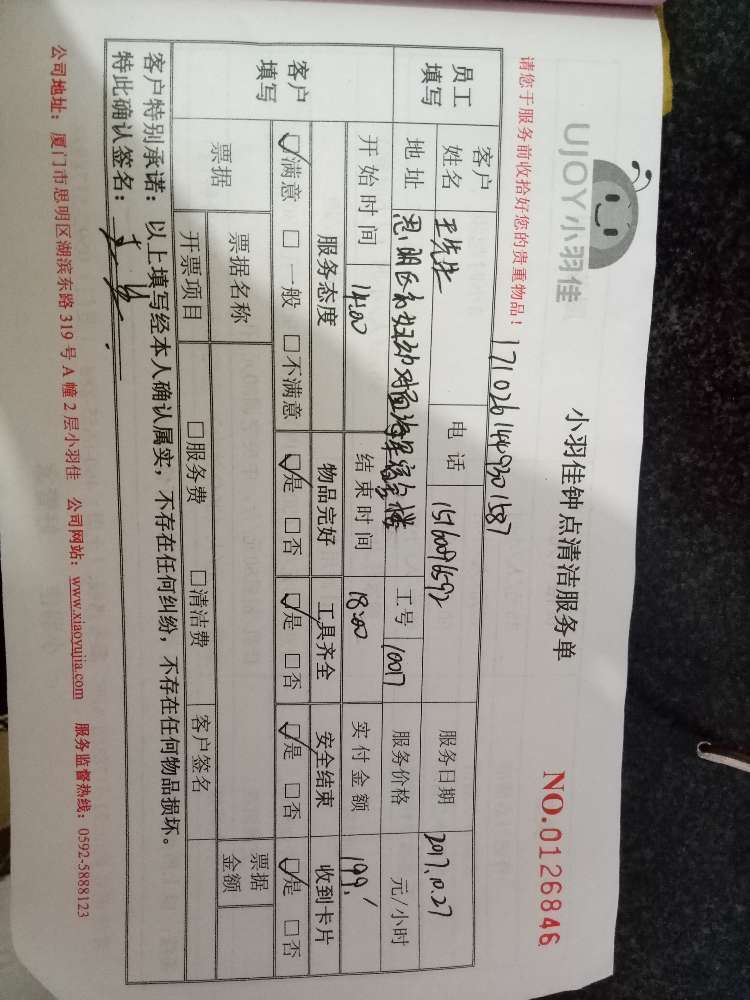 UJOY小羽佳
小羽佳钟点清洁服务单
NO.0126846
请您于服务前收拾好您的贵重物品！
员工填写 客户姓名 王先生 电话 服务日期 2017.10.27
地址 思明区 工号 10017 服务价格 元/小时
开始时间 14:00 结束时间 18:00 实付金额 199.
客户填写 服务态度 物品完好 工具齐全 安全结束 收到卡片
☑满意 □一般 □不满意 ☑是 □否 ☑是 □否 ☑是 □否 ☑是 □否
票据 票据名称 票据金额
开票项目 □服务费 □清洁费 客户签名
客户特别承诺：以上填写经本人确认属实，不存在任何纠纷，不存在任何物品损坏。
特此确认签名：
公司地址：厦门市思明区湖滨东路 319 号 A 幢 2 层小羽佳 公司网站：www.xiaoyujia.com 服务监督热线：0592-5888123